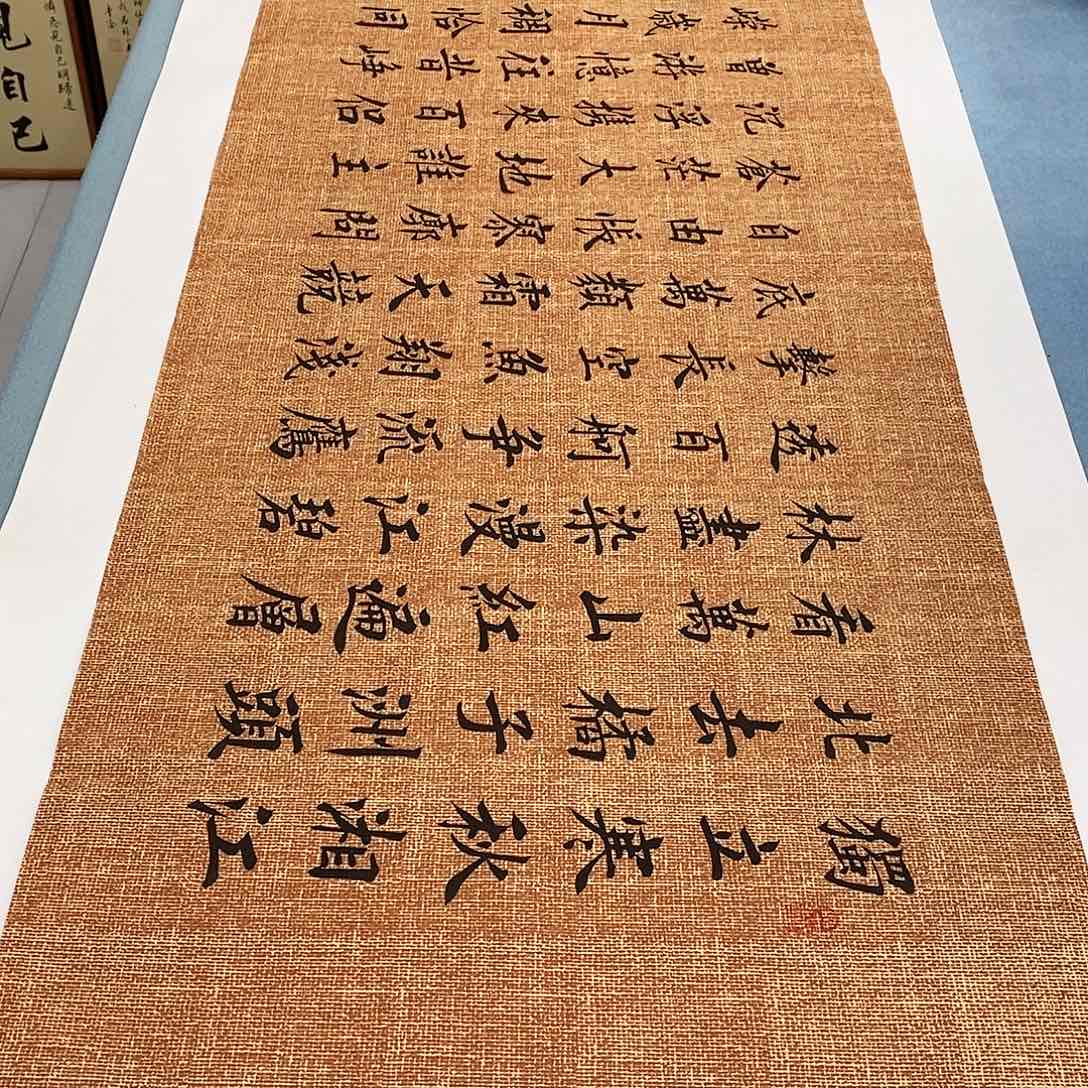 獨立寒秋湘江
北去橘子洲頭
看萬山紅遍層
林盡染漫江碧
透百舸争流鷹
擊長空魚翔淺
底萬類霜天競
自由悵寥廓問
蒼茫大地誰主
沉浮携來百侶
曾游憶往昔崢
嶸歲月稠恰同
見自己